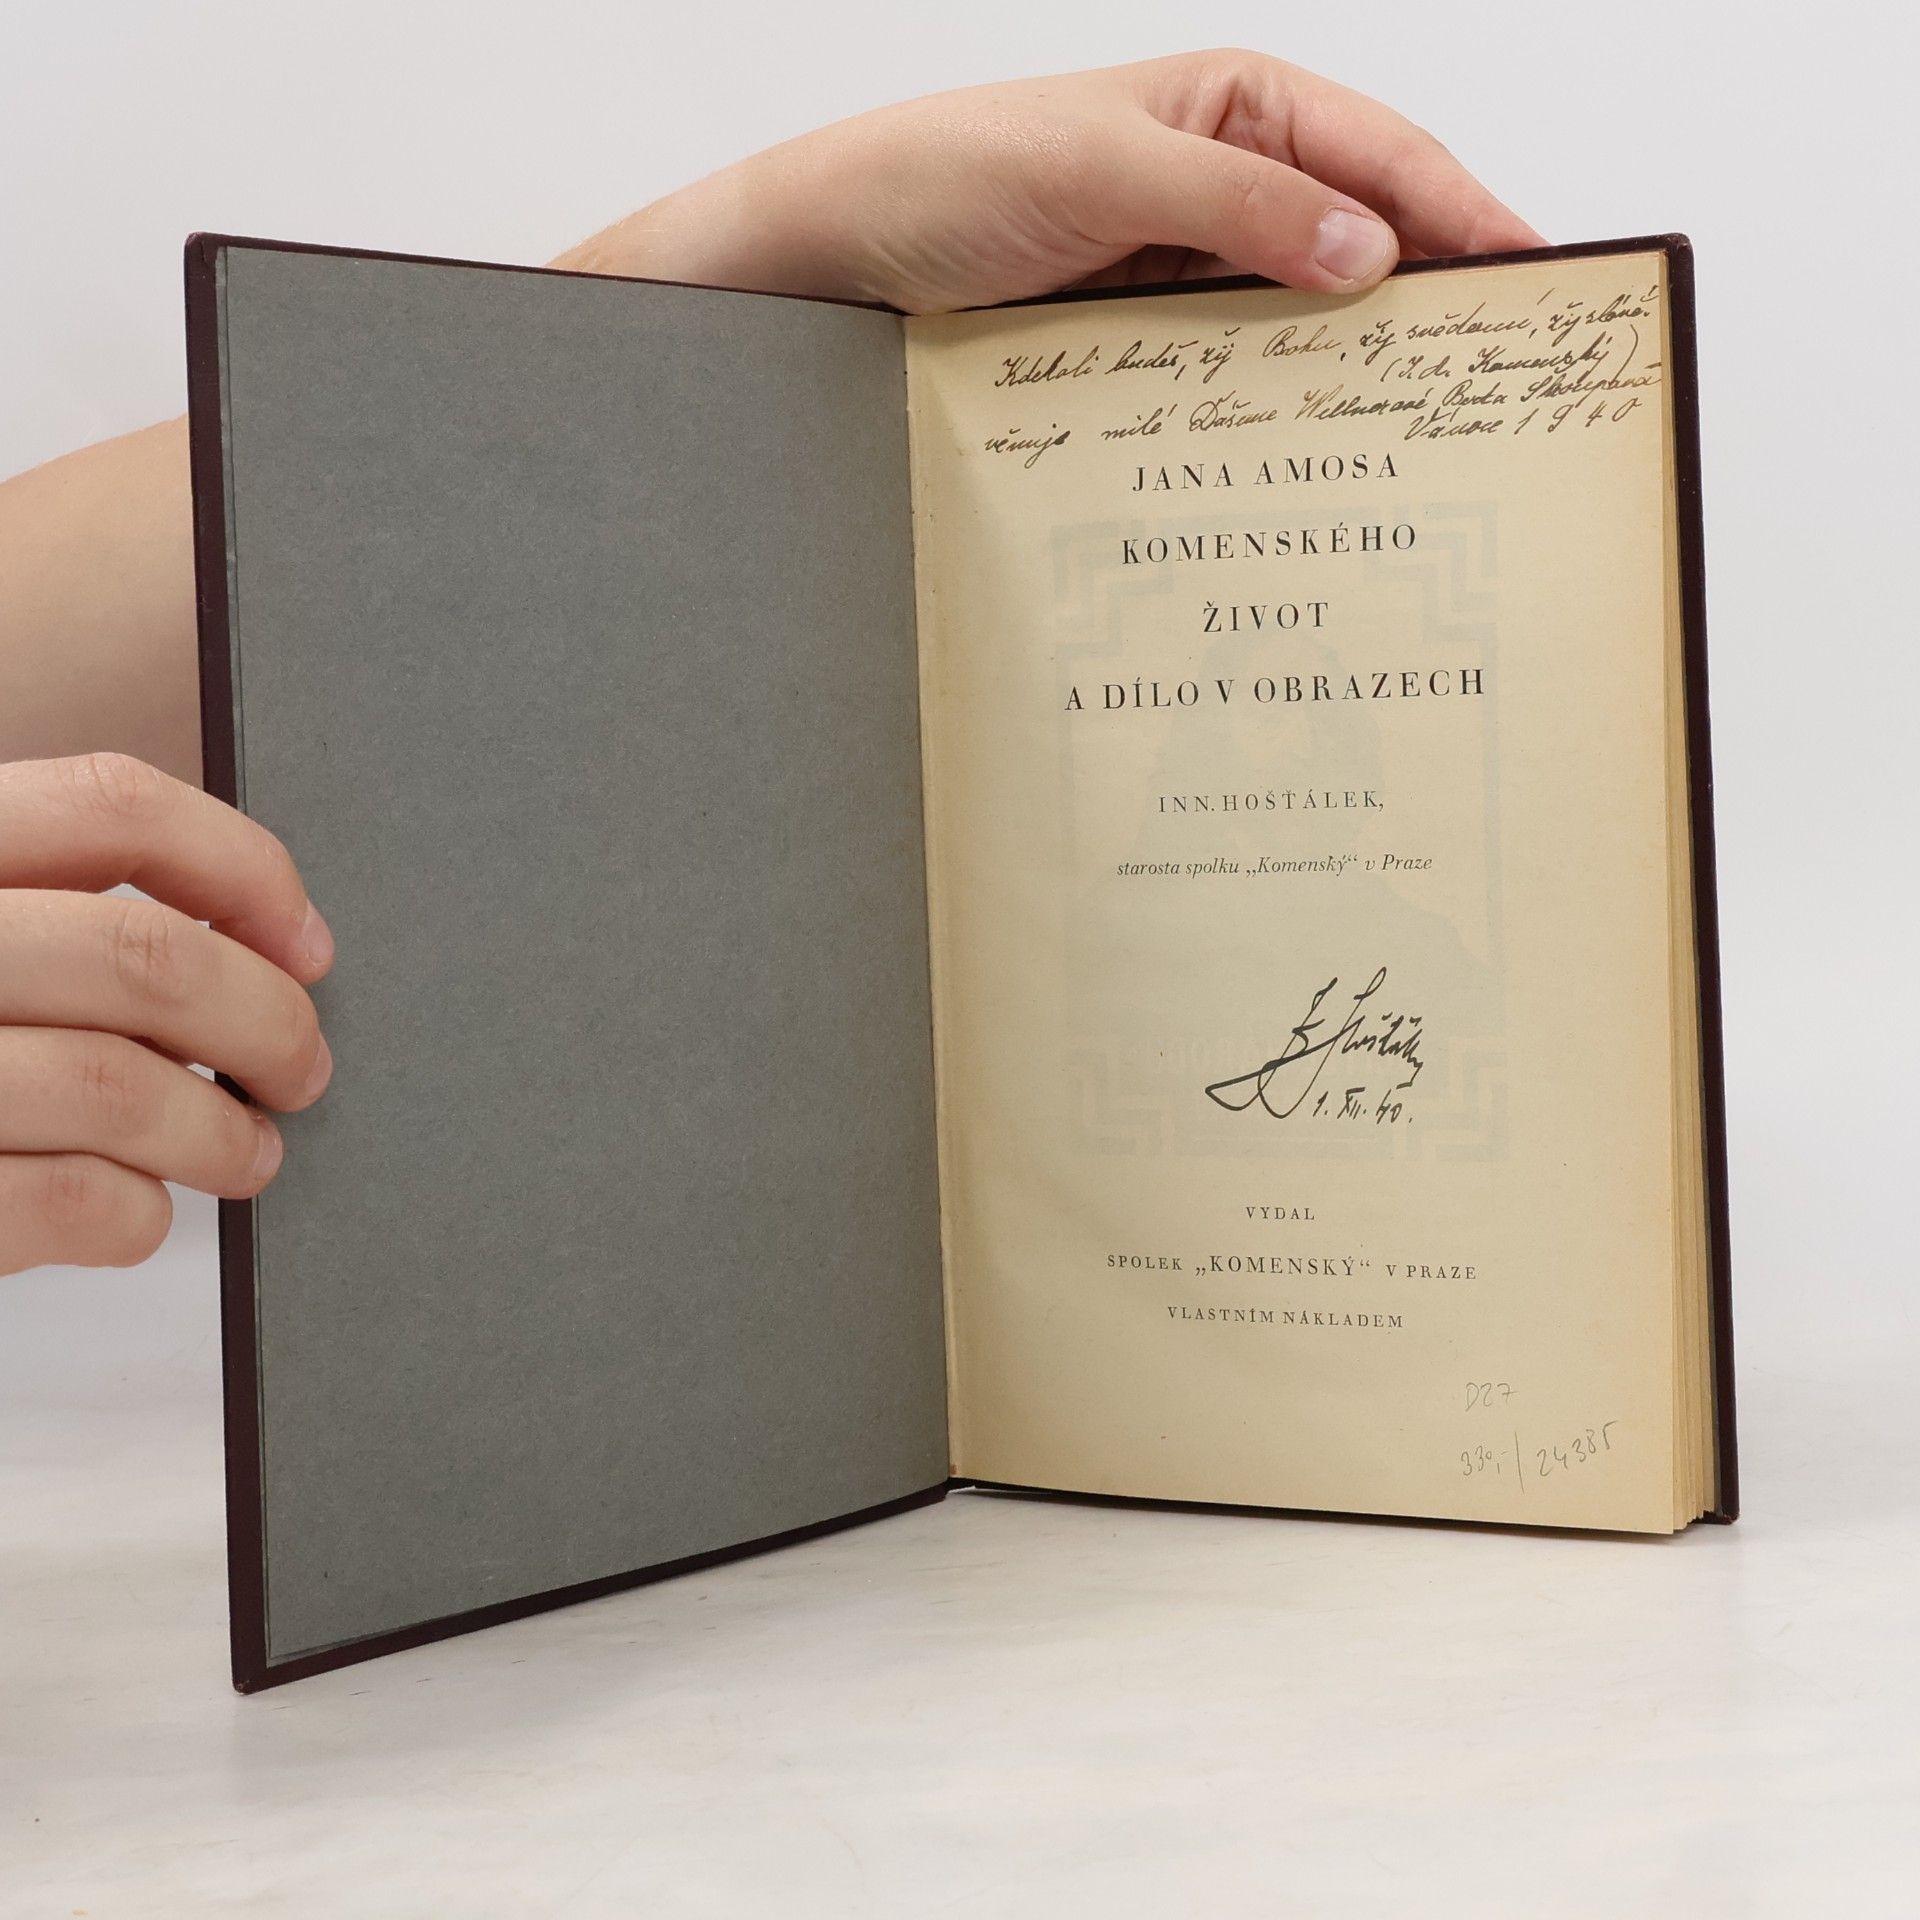 Kdekoli budeš, žij Bohu, žij svědomí, žij slávě!
(J. A. Komenský)
věnuje milé Dášence Wellnerové Berta Skoupová
Vánoce 1940
JANA AMOSA
KOMENSKÉHO
ŽIVOT
A DÍLO V OBRAZECH
INN. HOŠŤÁLEK,
starosta spolku „Komenský“ v Praze
1. XII. 40.
VYDAL
SPOLEK „KOMENSKÝ“ V PRAZE
VLASTNÍM NÁKLADEM
D27
330,- / 24385